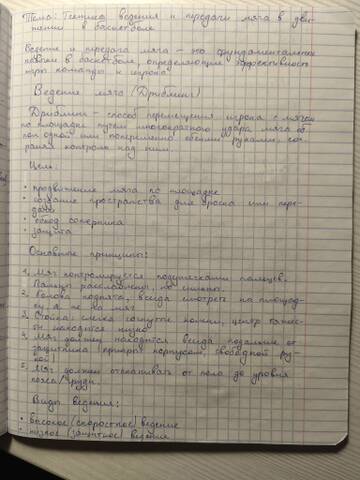 Тема: Техника ведения и передачи мяча в дви-
жении в баскетболе
Ведение и передача мяча - это фундаментальные
навыки в баскетболе, определяющие эффективность
игры команды и игрока.
Ведение мяча (Дриблинг)
Дриблинг - способ перемещения игрока с мячом
по площадке путем многократного удара мяча об
пол одной или попеременно обеими руками, сох-
раняя контроль над ним.
Цель:
• продвижение мяча по площадке
• создание пространства для броска или пере-
дачи
• обход соперника
• защита
Основные принципы:
1. Мяч контролируется подушечками пальцев.
Пальцы расслаблены, но сильны.
2. Голова поднята, всегда смотреть на площад-
ку, а не на мяч
3. Стойка: слегка согнутые колени, центр тяжес-
ти находится низко
4. Мяч должен находится всегда подальше от
защитника (прикрыт корпусом, свободной ру-
кой)
5. Мяч должен отскакивать от пола до уровня
пояса/груди.
Виды ведения:
• высокое (скоростное) ведение
• низкое (защитное) ведение